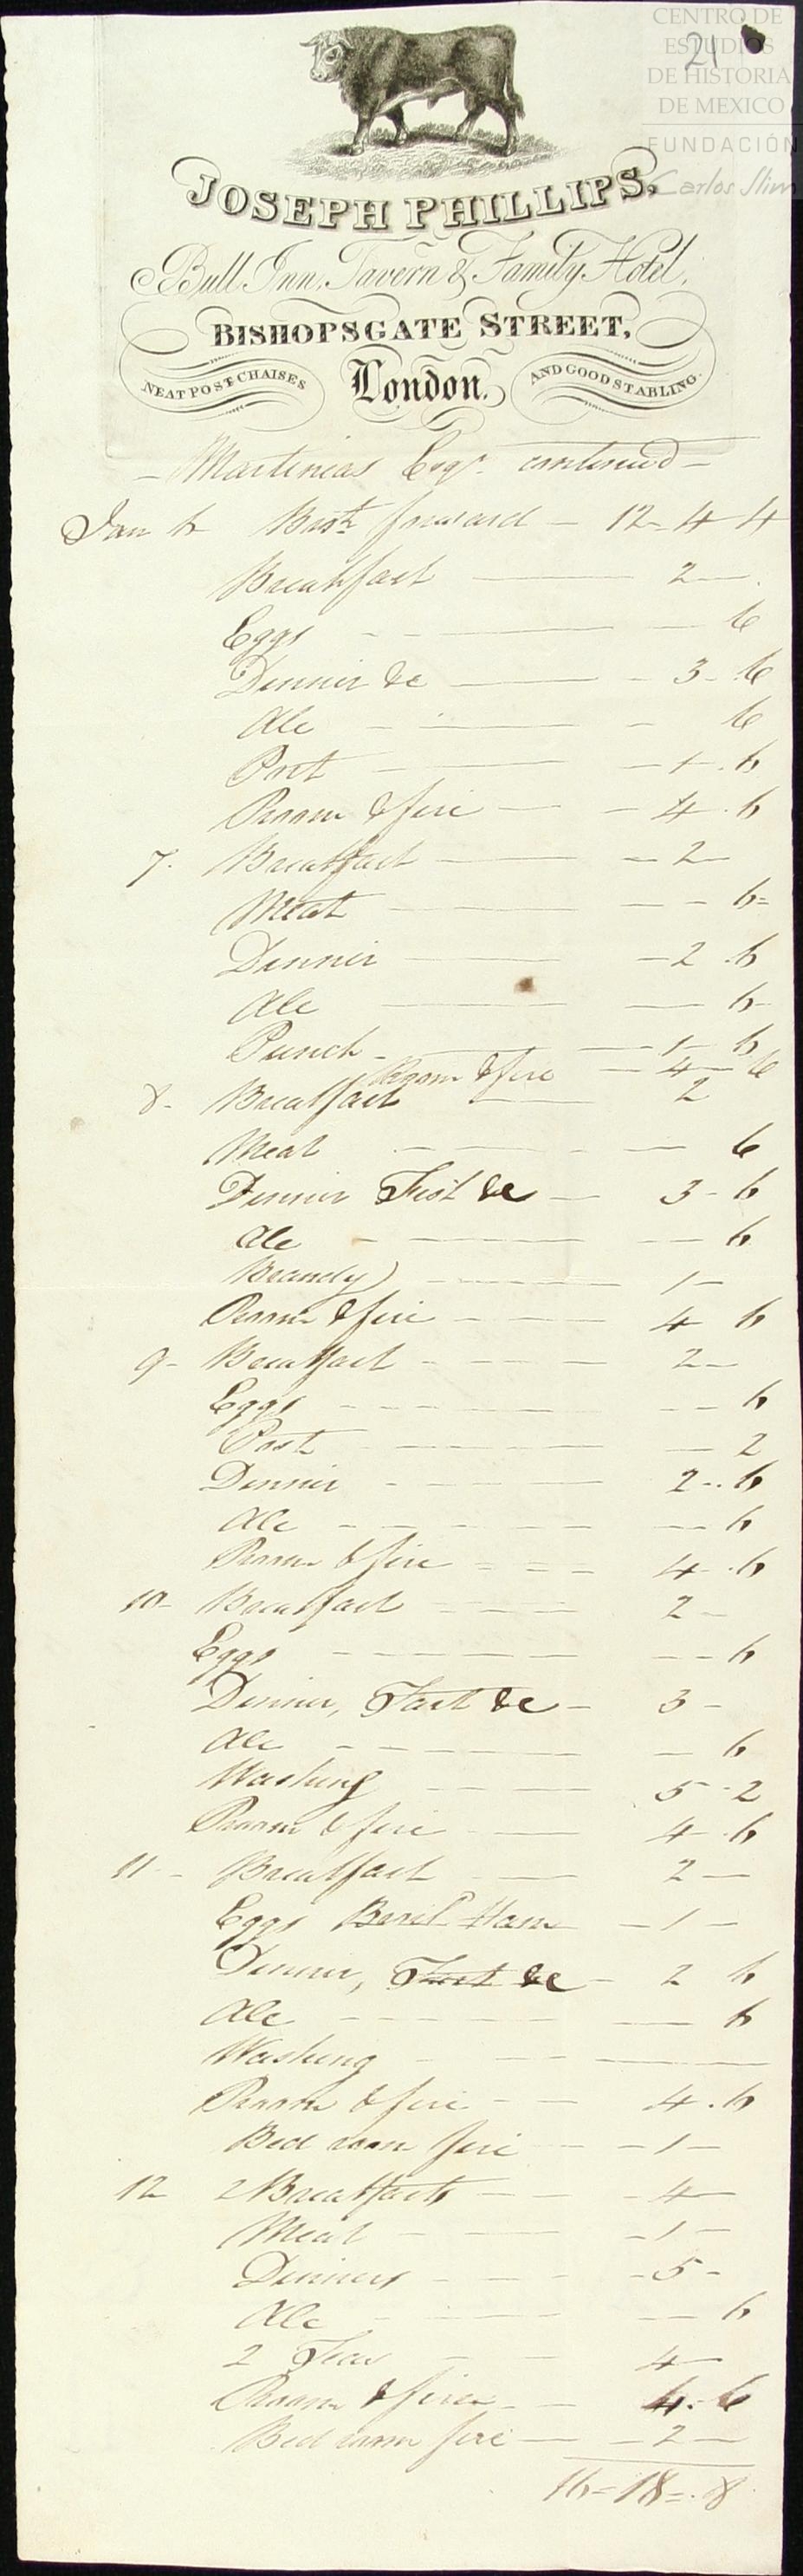 CENTRO DE
ESTUDIOS
DE HISTORIA
DE MEXICO
FUNDACIÓN
Carlos Slim
21
JOSEPH PHILLIPS,
Bull Inn, Tavern & Family Hotel,
BISHOPSGATE STREET,
NEAT POST CHAISES London. AND GOOD STABLING.
— Martinias Esqr. continued —
Jan 6 Brot. forward — 12 - 4 4
Breakfast — 2 —
Eggs — 6
Dinner &c — 3 - 6
Ale — 6
Port — 1 . 6
Room & fire — 4 . 6
7. Breakfast — 2 —
Meat — 6 =
Dinner — 2 . 6
Ale — 6 -
Punch — 1 - 6
Room & fire — 4 — 6
8- Breakfast — 2
Meat — 6
Dinner &c — 3 - 6
Ale — 6
Brandy — 1 —
Room & fire — 4 6
9- Breakfast — 2 —
Eggs — 6
Post — 2
Dinner — 2 .. 6
Ale — 6
Room & fire — 4 . 6
10- Breakfast — 2 -
Eggs — 6
Dinner, Tart &c — 3 -
Ale — 6
Washing — 5 - 2
Room & fire — 4 . 6
11 - Breakfast — 2 —
Eggs Ham — 1 -
Dinner, Tart &c — 2 6
Ale — 6
Washing —
Room & fire — 4 . 6
Bed room fire — 1 —
12 2 Breakfasts — 4 —
Meat — 1 —
Dinners — 5 -
Ale — 6
2 Teas — 4 —
Room & fire — 4 . 6
Bed room fire — 2 —
16 = 18 = . 8